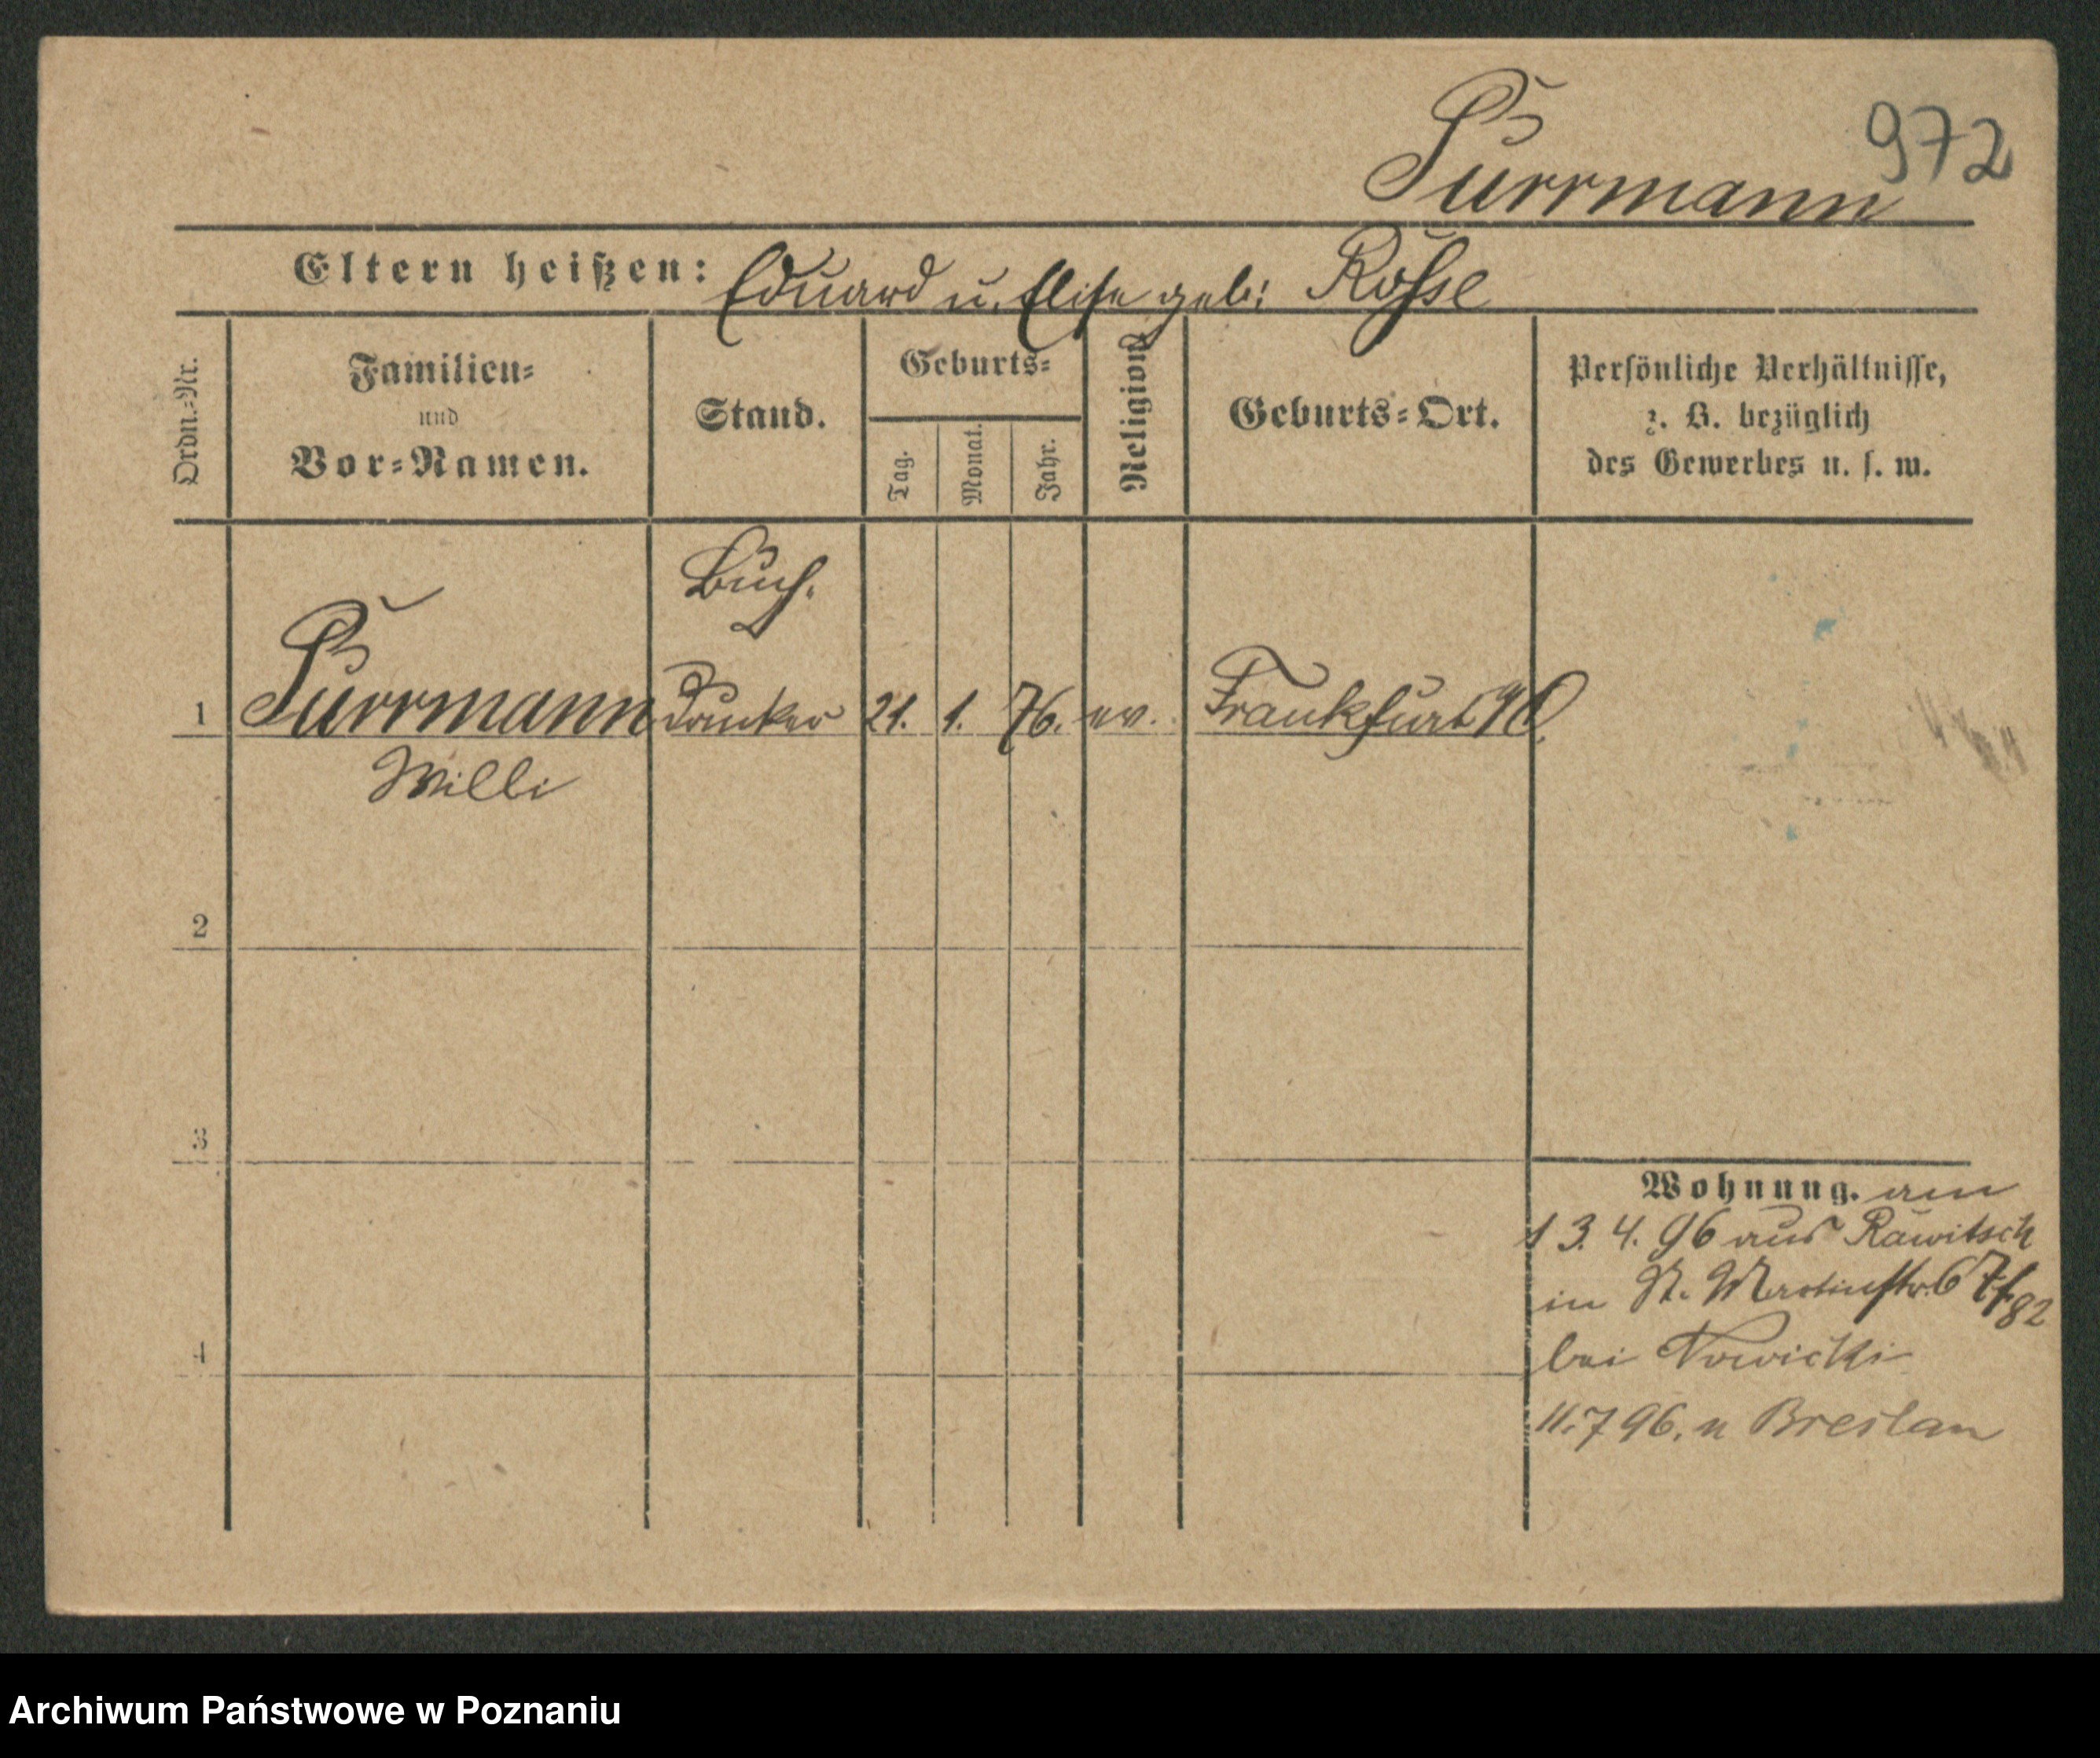 972
Purrmann
Eltern heißen: Eduard u. Elise geb: Rosse
Ordn.-Nr.
Familien-
und
Vor-Namen.
Stand.
Geburts-
Tag.
Monat.
Jahr.
Religion.
Geburts-Ort.
Persönliche Verhältnisse,
z. B. bezüglich
des Gewerbes u. s. w.
Buch.
1 Purrmann Drucker 21. 1. 76. ev. Frankfurt
Willi
2
3
4
Wohnung. am
13. 4. 96 aus Rawitsch
in St. Martinstr. 67
82
bei Nowicki
11.7 96. n Breslau
Archiwum Państwowe w Poznaniu